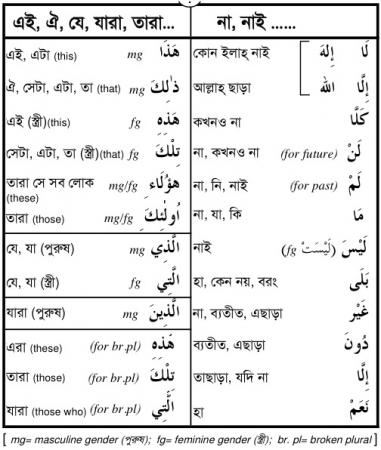 এই, ঐ, যে, যারা, তারা... না, নাই ......
এই, এটা (this) mg هَذَا কোন ইলাহ নাই لَا إِلَهَ
ঐ, সেটা, এটা, তা (that) mg ذَٰلِكَ আল্লাহ ছাড়া إِلَّا الله
এই (স্ত্রী)(this) fg هَذِهِ কখনও না كَلَّا
সেটা, এটা, তা (স্ত্রী)(that) fg تِلْكَ না, কখনও না (for future) لَنْ
তারা সে সব লোক (these) mg/fg هَؤُلَاءِ না, নি, নাই (for past) لَمْ
তারা (those) mg/fg أُولَٰئِكَ না, যা, কি مَا
যে, যা (পুরুষ) mg الَّذِي নাই لَيْسَ (لَيْسَتْ fg)
যে, যা (স্ত্রী) fg الَّتِي হা, কেন নয়, বরং بَلَى
যারা (পুরুষ) mg الَّذِينَ না, ব্যতীত, এছাড়া غَيْر
এরা (these) (for br.pl) هَذِهِ ব্যতীত, এছাড়া دُونَ
তারা (those) (for br.pl) تِلْكَ তাছাড়া, যদি না إِلَّا
যারা (those who) (for br.pl) الَّتِي হা نَعَمْ
[ mg= masculine gender (পুরুষ); fg= feminine gender (স্ত্রী); br. pl= broken plural ]